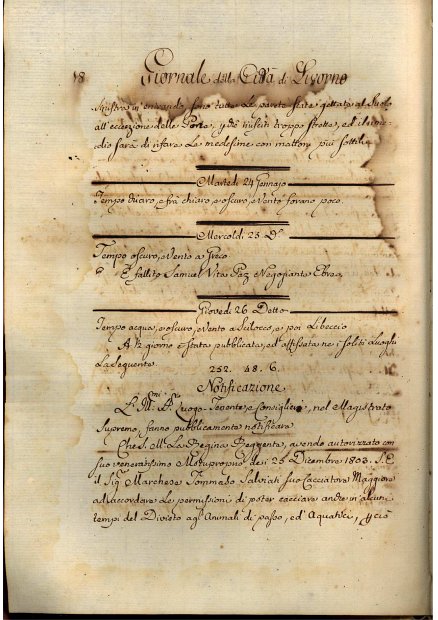 18 Giornale della Città di Livorno
sinistra in entrando sono tutte le parete state gettate al suolo
all'eccezione delle Porte, p che riusciti troppo strette, ed il rime-
dio sarà di rifare le medesime con mattoni più sottili
Martedì 24 Gennajo
Tempo chiaro, e frà chiaro, e oscuro, e vento forano poco.
Mercoldì 25 Do
Tempo oscuro, e vento a Greco
È fallito Samuel Vita Paz Negoziante Ebreo,
Giovedì 26 Detto
Tempo acqua, e oscuro, e vento a Scilocco, e poi Libeccio
A 12 giorno è stata pubblicata, ed affissata ne i soliti Luoghi
la seguente
252. 48. 6.
Notificazione
Luogo-Tenente, e Consiglieri, nel Magistrato
Supremo, fanno pubblicamente notificare
Che S. M. la Regina Reggente, avendo autorizzato con
suo veneratissimo Motuproprio dei 23 Dicembre 1803. S. E.
il Sig. Marchese Tommaso Salviati suo Cacciatore Maggiore
ad accordare le permissioni di poter cacciare anche in alcuni
tempi del Divieto agl'Animali di passo, ed Aquatici, p ciò